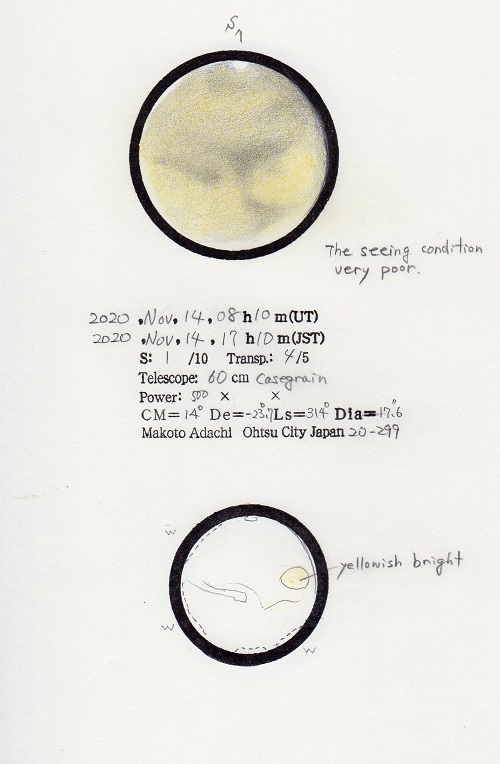 S
The seeing condition
very poor.
2020 , Nov, 14, 08 h 10 m(UT)
2020 , Nov, 14, 17 h 10 m(JST)
S: 1 /10 Transp.: 4/5
Telescope: 60 cm Casegrain
Power: 500 × ×
CM= 14° De= -23.°7 Ls= 314° Dia= 17."6
Makoto Adachi Ohtsu City Japan 20-299
W
yellowish bright
W
W